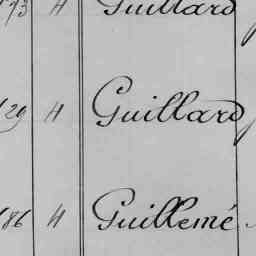 73 H Guillard
29 H Guillard
86 H Guillemé